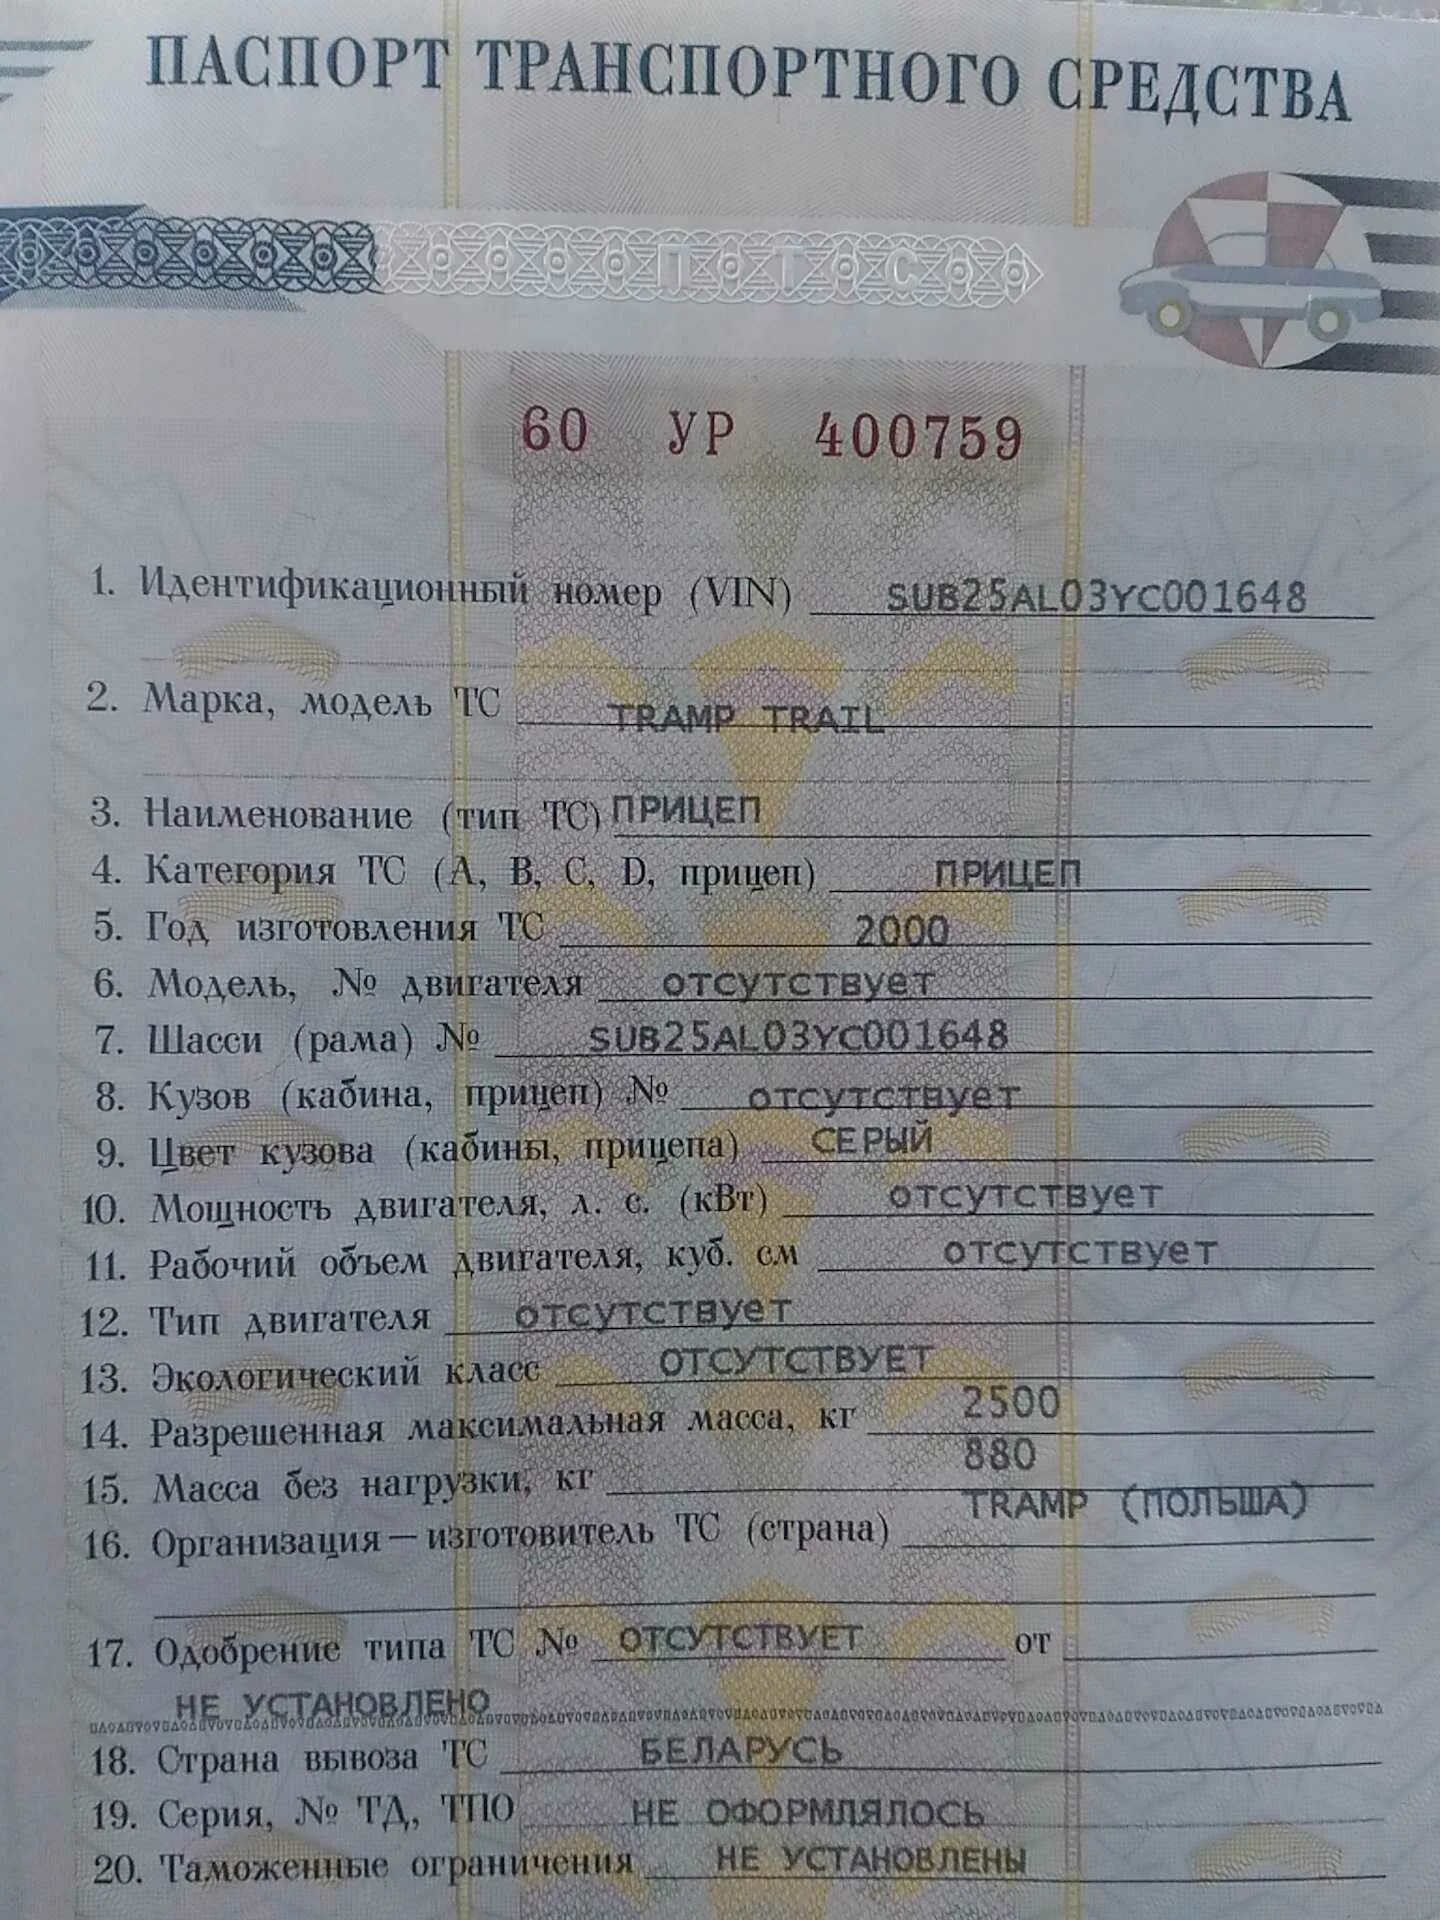 ПАСПОРТ ТРАНСПОРТНОГО СРЕДСТВА
П Т С
60 УР 400759
1. Идентификационный номер (VIN) SUB25AL03YC001648
2. Марка, модель ТС TRAMP TRAIL
3. Наименование (тип ТС) ПРИЦЕП
4. Категория ТС (А, В, С, D, прицеп) ПРИЦЕП
5. Год изготовления ТС 2000
6. Модель, № двигателя отсутствует
7. Шасси (рама) № SUB25AL03YC001648
8. Кузов (кабина, прицеп) № отсутствует
9. Цвет кузова (кабины, прицепа) СЕРЫЙ
10. Мощность двигателя, л. с. (кВт) отсутствует
11. Рабочий объем двигателя, куб. см отсутствует
12. Тип двигателя отсутствует
13. Экологический класс ОТСУТСТВУЕТ
14. Разрешенная максимальная масса, кг 2500
15. Масса без нагрузки, кг 880
16. Организация—изготовитель ТС (страна) TRAMP (ПОЛЬША)
17. Одобрение типа ТС № ОТСУТСТВУЕТ от
НЕ УСТАНОВЛЕНО
18. Страна вывоза ТС БЕЛАРУСЬ
19. Серия, № ТД, ТПО НЕ ОФОРМЛЯЛОСЬ
20. Таможенные ограничения НЕ УСТАНОВЛЕНЫ